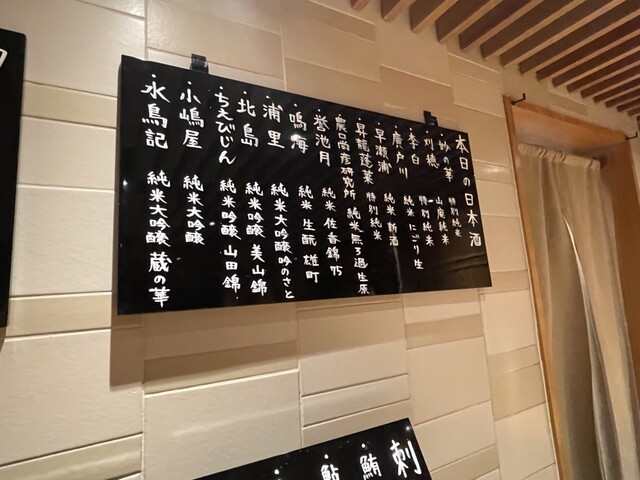 本日の日本酒
・妙の華 特別純米
・刈穂 山廃純米
・李白 特別純米
・廣戸川 純米 にごり生
・早瀬浦 純米 新酒
・昇龍蓬莱 特別純米
・農口尚彦研究所 純米無ろ過生原
・誉池月 純米 佐香錦75
・鳴海 純米 生酛 雄町
・浦里 純米大吟醸 吟のさと
・北島 純米吟醸 美山錦
・ちえびじん 純米吟醸 山田錦
・小嶋屋 純米大吟醸
・水鳥記 純米大吟醸 蔵の華
刺
・鮪
・鮎